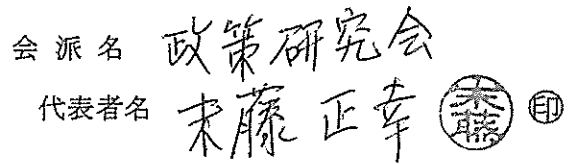 会派名 政策研究会
代表者名 末藤 正幸 末藤 ㊞